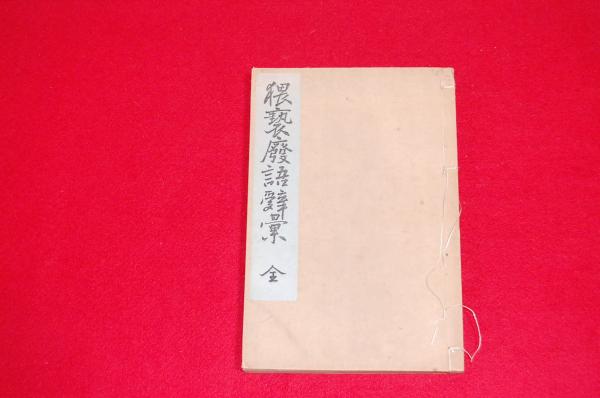 猥褻廢語辭彙 全